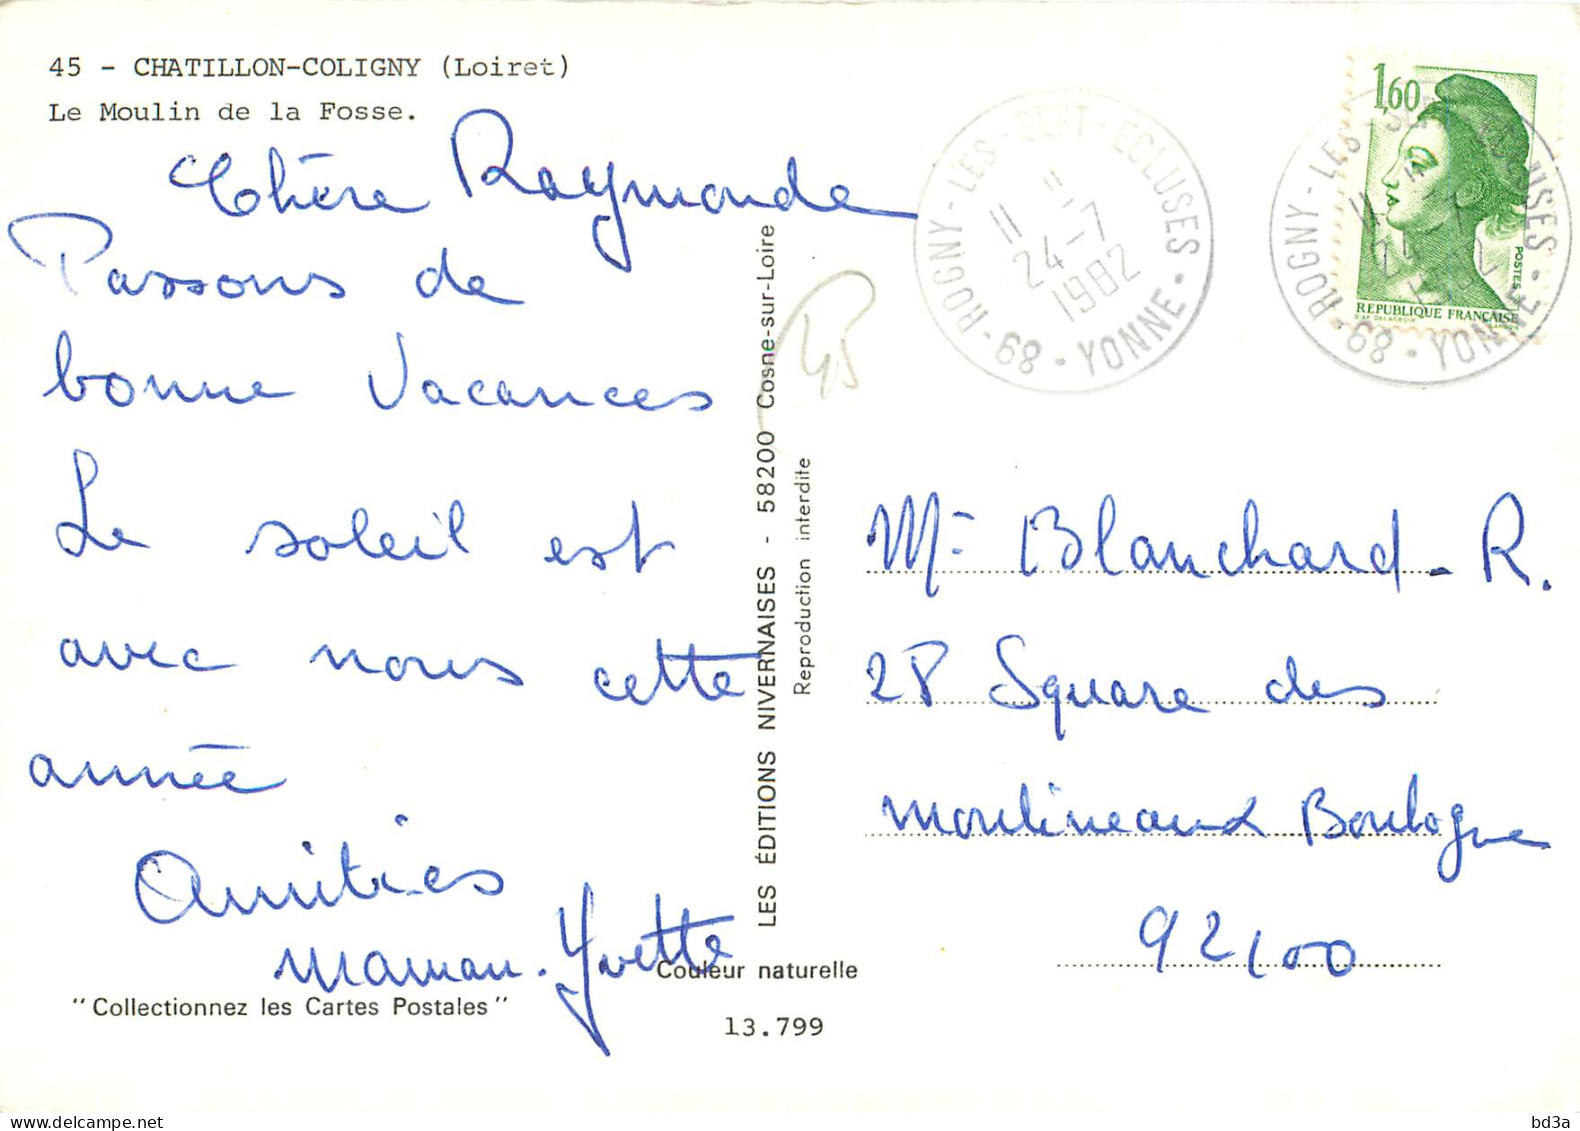 45 - CHATILLON-COLIGNY (Loiret)
Le Moulin de la Fosse.
Chère Raymonde
Passons de
bonne Vacances
Le soleil est
avec nous cette
année
Amitiés
Maman. Yvette
"Collectionnez les Cartes Postales"
LES ÉDITIONS NIVERNAISES - 58200 Cosne-sur-Loire
Reproduction interdite
Couleur naturelle
13.799
45
ROGNY-LES-SEPT-ECLUSES
11
24-7
1982
89 · YONNE
1,60
POSTES
REPUBLIQUE FRANÇAISE
ROGNY-LES-SEPT-ECLUSES
11
24-7
1982
89 · YONNE
Me Blanchard-R.
28 Square des
moulineaux Boulogne
92100
bd3a